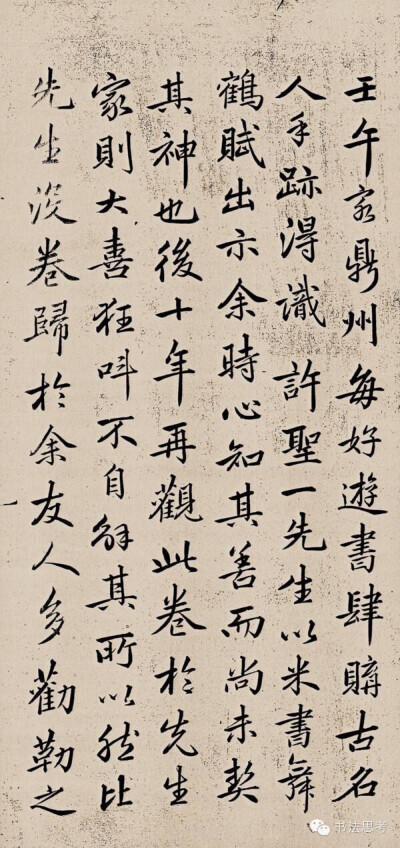 壬午客鼎州每好遊書肆購古名
人手跡得識許聖一先生以米書舞
鶴賦出示余時心知其善而尚未契
其神也後十年再觀此卷於先生
家則大喜狂呌不自解其所以然比
先生沒卷歸於余友人多勸勒之
书法思考